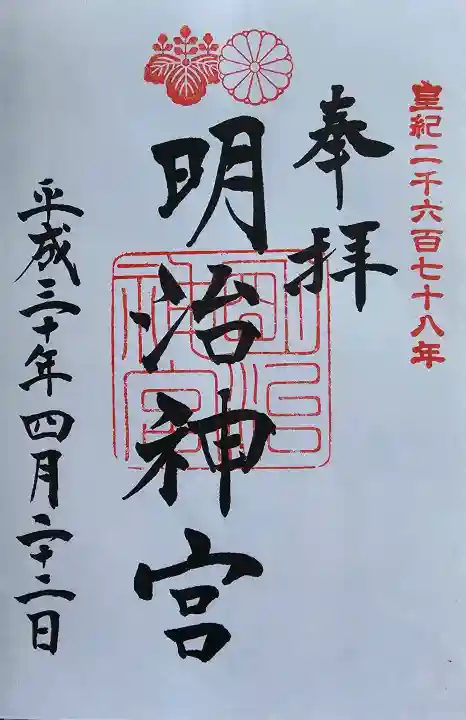 皇紀二千六百七十八年
奉拝
明治神宮
明治神宮
平成三十年四月二十二日